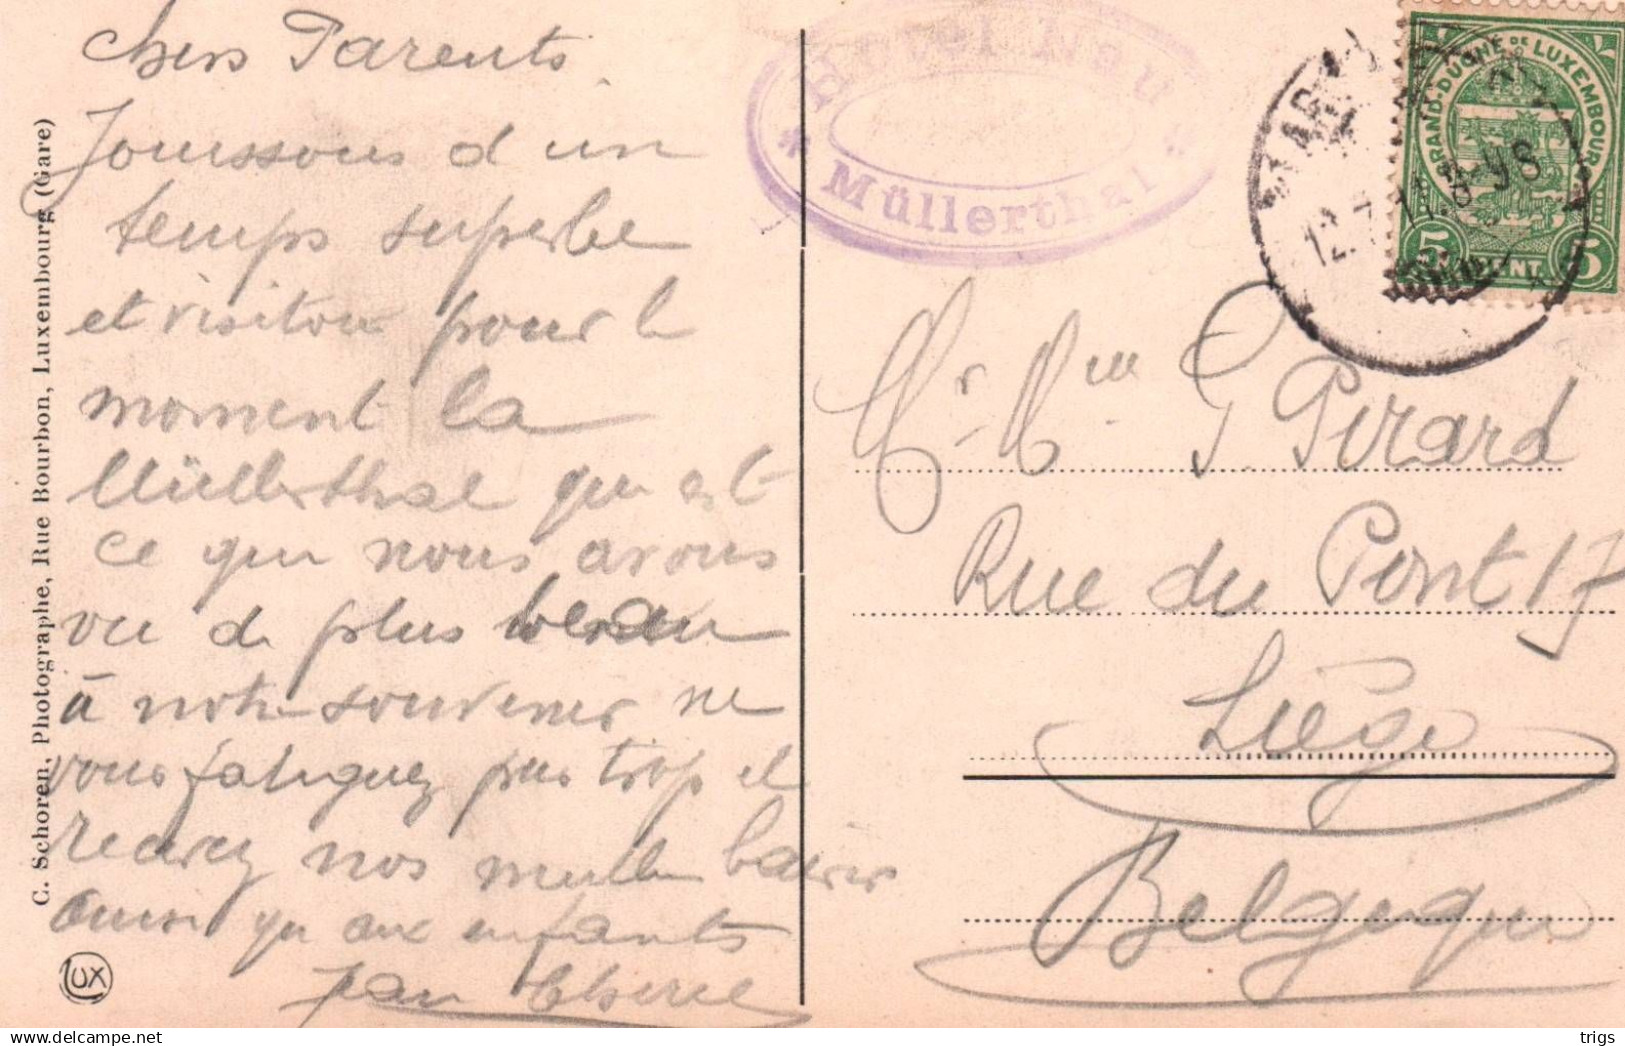 Chers Parents
Jouissons d'un
temps superbe
et visitons pour le
moment la
Müllerthal qui est
ce que nous avons
vu de plus beau
à notre souvenir ne
vous fatiguez pas trop et
recevez nos meilleurs baisers
ainsi qu aux enfants
Jean
C. Schoren, Photographe, Rue Bourbon, Luxembourg (Gare)
LUX
Hôtel Nau
* Müllerthal *
GRAND-DUCHÉ DE LUXEMBOURG
5 5
12.7.11.8-9S
Mr Mme P. Pirard
Rue du Pont 17
Liège
Belgique
trigs